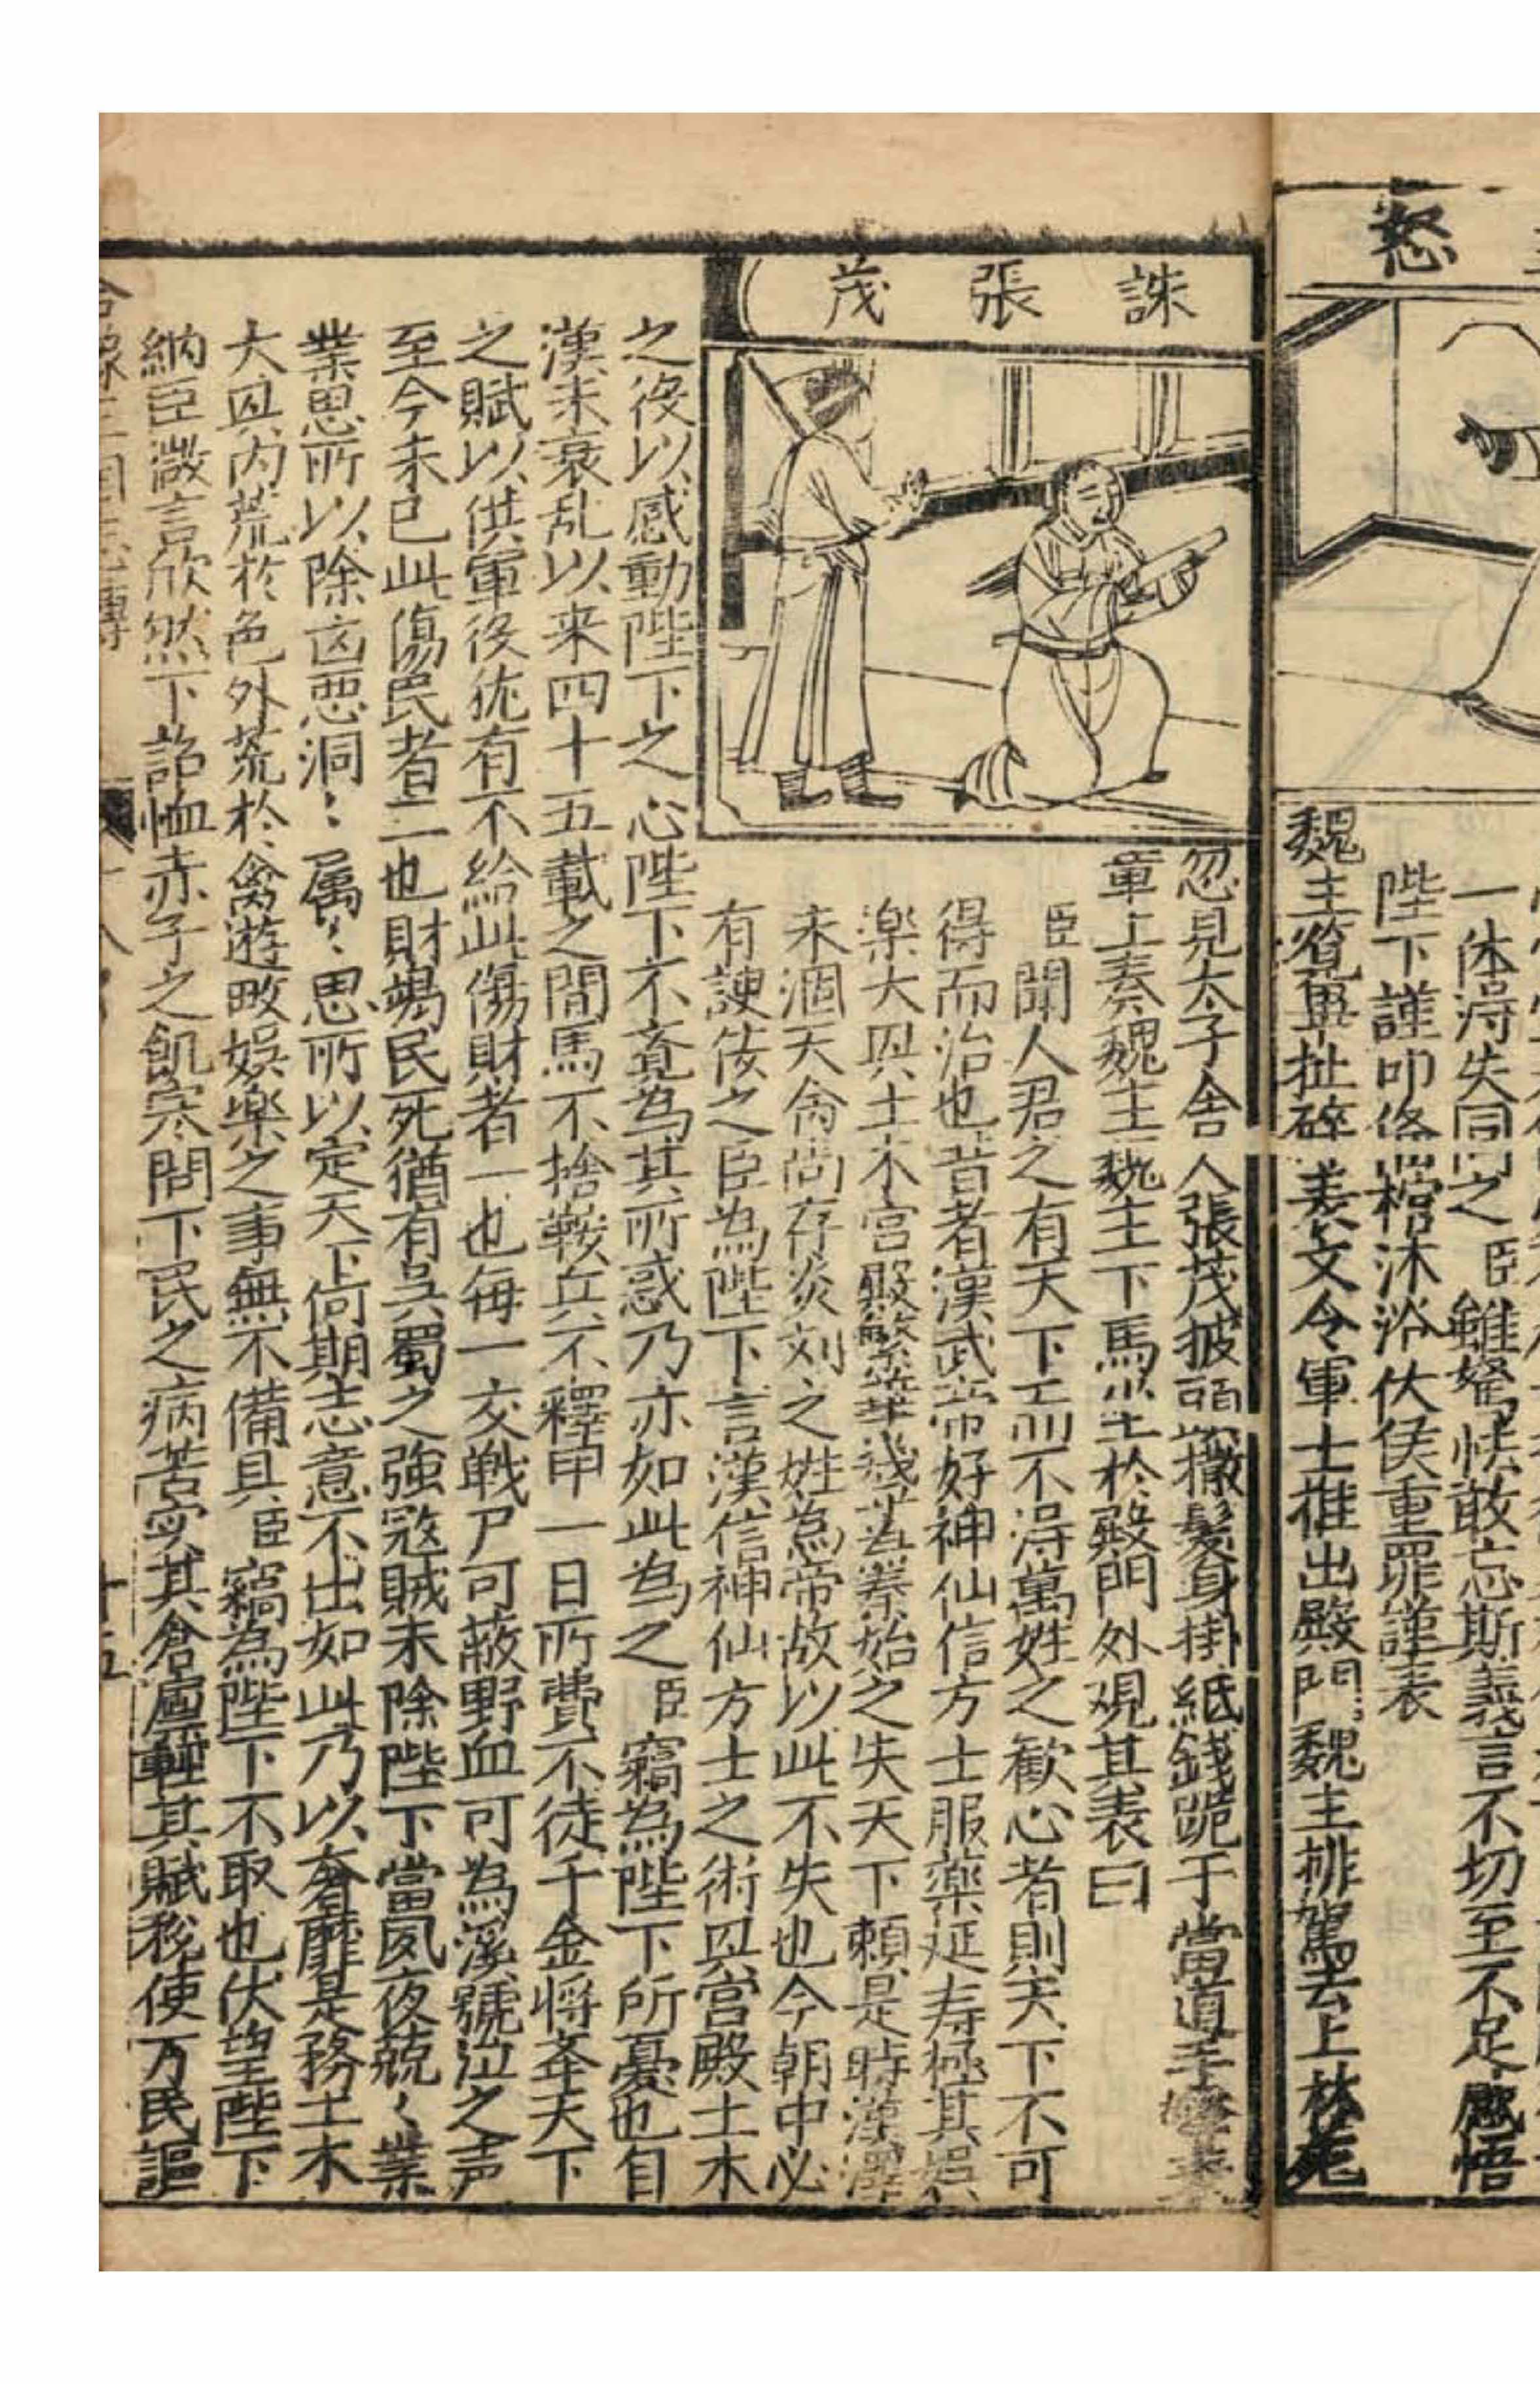 怒
一体淂失同之臣雖駑怯敢忘斯義言不切至不足感悟
陛下謹叩棺沐浴伏侯重罪謹表
魏主覧畢扯碎表文令軍士推出殿門魏主排駕去上林苑
誅張茂
忽見太子舍人張茂披頭撒髮身掛紙錢跪于當道手擎表
章上奏魏主魏主下馬坐於殿門外观其表曰
臣聞人君之有天下而不淂萬姓之歡心者則天下不可
得而治也昔者漢武帝好神仙信方士服藥延寿極其娯
楽大興土木宫殿繁華後世為秦始之失天下賴是時漢澤
未涸天禽尚存炎刘之姓為帝故以此不失也今朝中必
有諛佞之臣為陛下言漢信神仙方士之術興宫殿土木
之役以感動陛下之心陛下不覔為其所惑乃亦如此為之臣竊為陛下所憂也自
漢末衰乱以来四十五載之間馬不捨鞍兵不釋甲一日所費不徒千金將奔天下
之賦以供軍役犹有不給此傷財者一也每一交戦尸可蔽野血可為溪號泣之声
至今未已此傷民者二也財竭民死猶有吳蜀之強寇賊未除陛下當夙夜兢〻業
業思所以除凶惡洞〻属〻思所以定天下何期志意不出如此乃以奢靡是務土木
大興内荒於色外荒於禽遊畋娯楽之事無不備具臣竊為陛下不取也伏望陛下
納臣微言欣然下詔恤赤子之飢寒問下民之病苦实其倉廩輕其賦税使万民謳